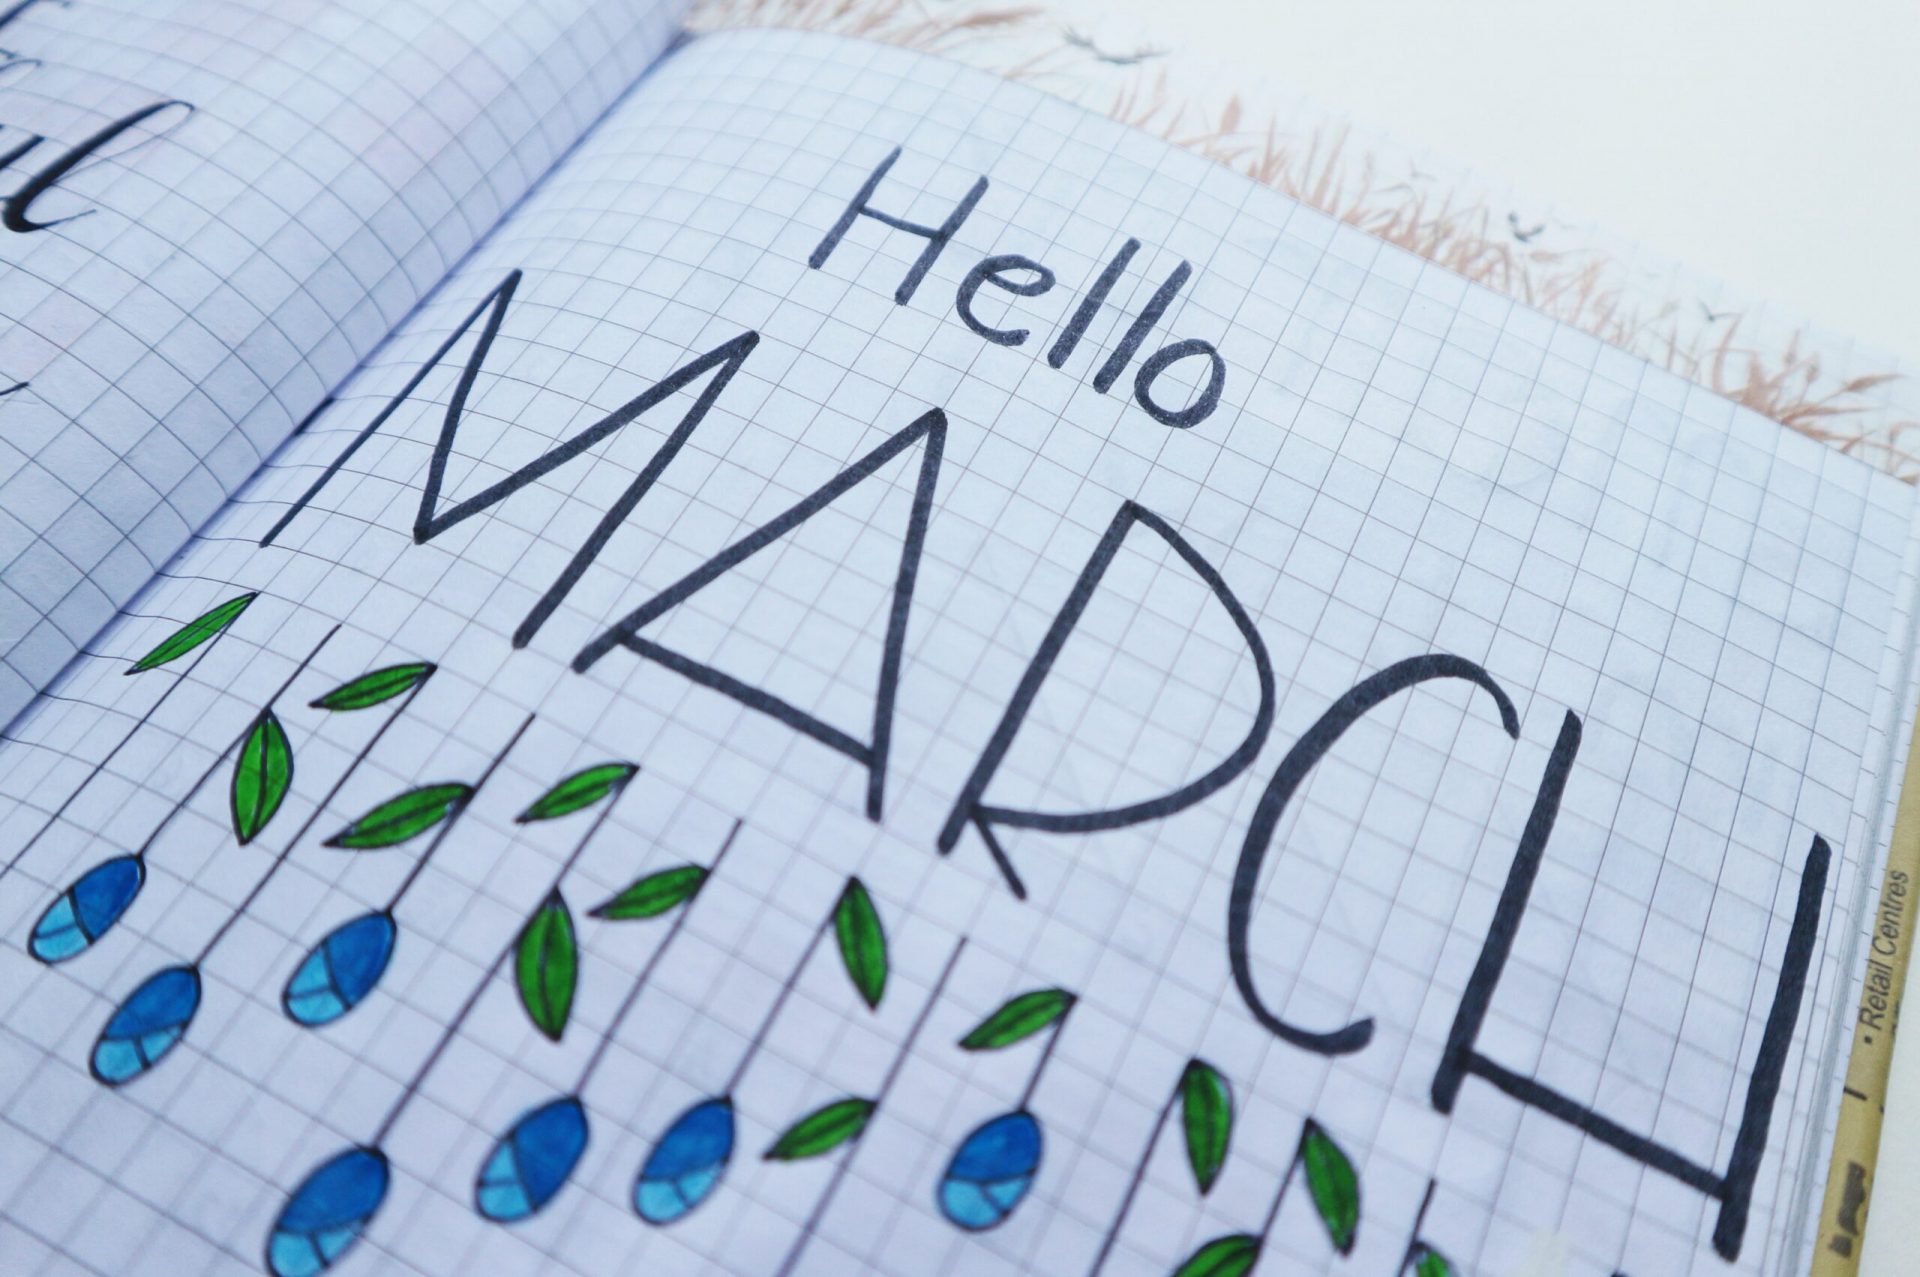 Hello
MARCH
• Retail Centres